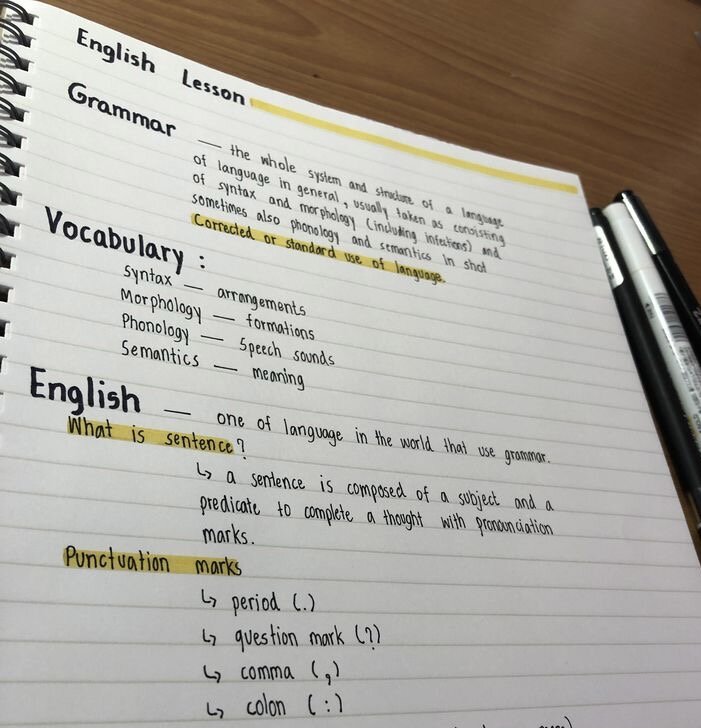 English Lesson
Grammar — the whole system and structure of a language
of language in general, usually taken as consisting
of syntax and morphology (including infections) and
sometimes also phonology and semantics in shot
Corrected or standard use of language.
Vocabulary :
Syntax — arrangements
Morphology — formations
Phonology — Speech sounds
Semantics — meaning
English — one of language in the world that use grammar.
What is sentence?
↳ a sentence is composed of a subject and a
predicate to complete a thought with pronounciation
marks.
Punctuation marks
↳ period (.)
↳ question mark (?)
↳ comma (,)
↳ colon (:)